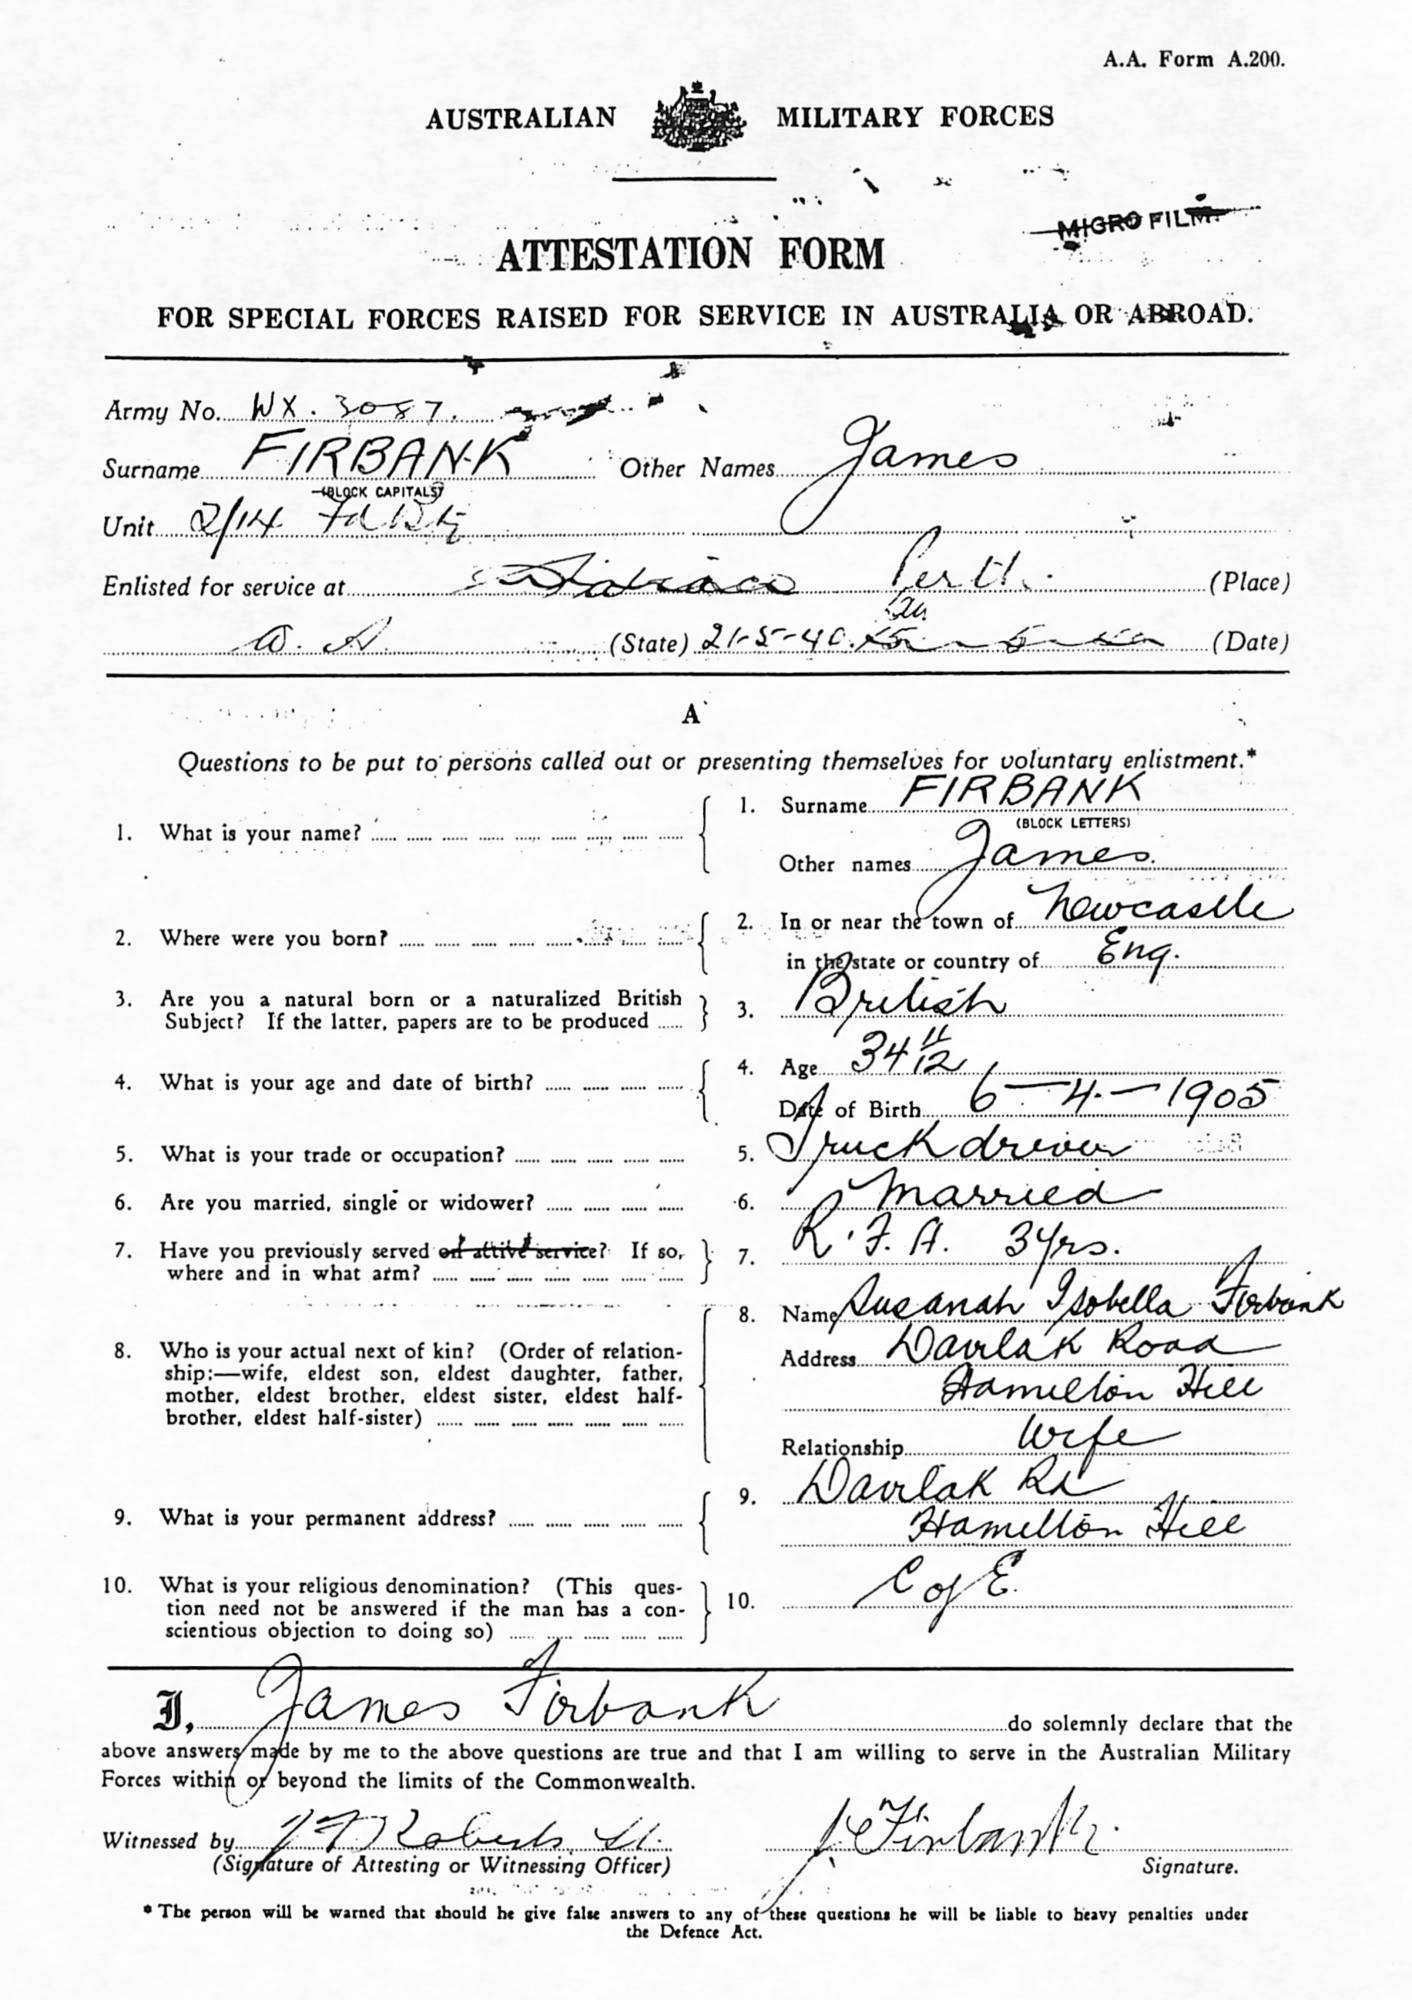 A.A. Form A.200.
AUSTRALIAN MILITARY FORCES
MICROFILM
ATTESTATION FORM
FOR SPECIAL FORCES RAISED FOR SERVICE IN AUSTRALIA OR ABROAD.
Army No. WX. 3087.
Surname FIRBANK Other Names James
(BLOCK CAPITALS)
Unit 2/14 Fd
Enlisted for service at Perth. (Place)
W. A. (State) 21-5-40. (Date)
A
Questions to be put to persons called out or presenting themselves for voluntary enlistment.*
1. What is your name? 1. Surname FIRBANK
(BLOCK LETTERS)
Other names James.
2. Where were you born? 2. In or near the town of Newcastle
in the state or country of Eng.
3. Are you a natural born or a naturalized British
Subject? If the latter, papers are to be produced 3. British
4. What is your age and date of birth? 4. Age 34 11/12
Date of Birth 6-4-1905
5. What is your trade or occupation? 5. Truck driver
6. Are you married, single or widower? 6. Married
7. Have you previously served on active service? If so,
where and in what arm? 7. R.F.A. 3yrs.
8. Who is your actual next of kin? (Order of relation-
ship:—wife, eldest son, eldest daughter, father,
mother, eldest brother, eldest sister, eldest half-
brother, eldest half-sister)
8. Name Susanah Isobella Firbank
Address Davilak Road
Hamilton Hill
Relationship Wife
9. What is your permanent address? 9. Davilak Rd
Hamilton Hill
10. What is your religious denomination? (This ques-
tion need not be answered if the man has a con-
scientious objection to doing so) 10. C of E.
I, James Firbank do solemnly declare that the
above answers made by me to the above questions are true and that I am willing to serve in the Australian Military
Forces within or beyond the limits of the Commonwealth.
Witnessed by Roberts Lt. J. Firbank.
(Signature of Attesting or Witnessing Officer) Signature.
* The person will be warned that should he give false answers to any of these questions he will be liable to heavy penalties under
the Defence Act.